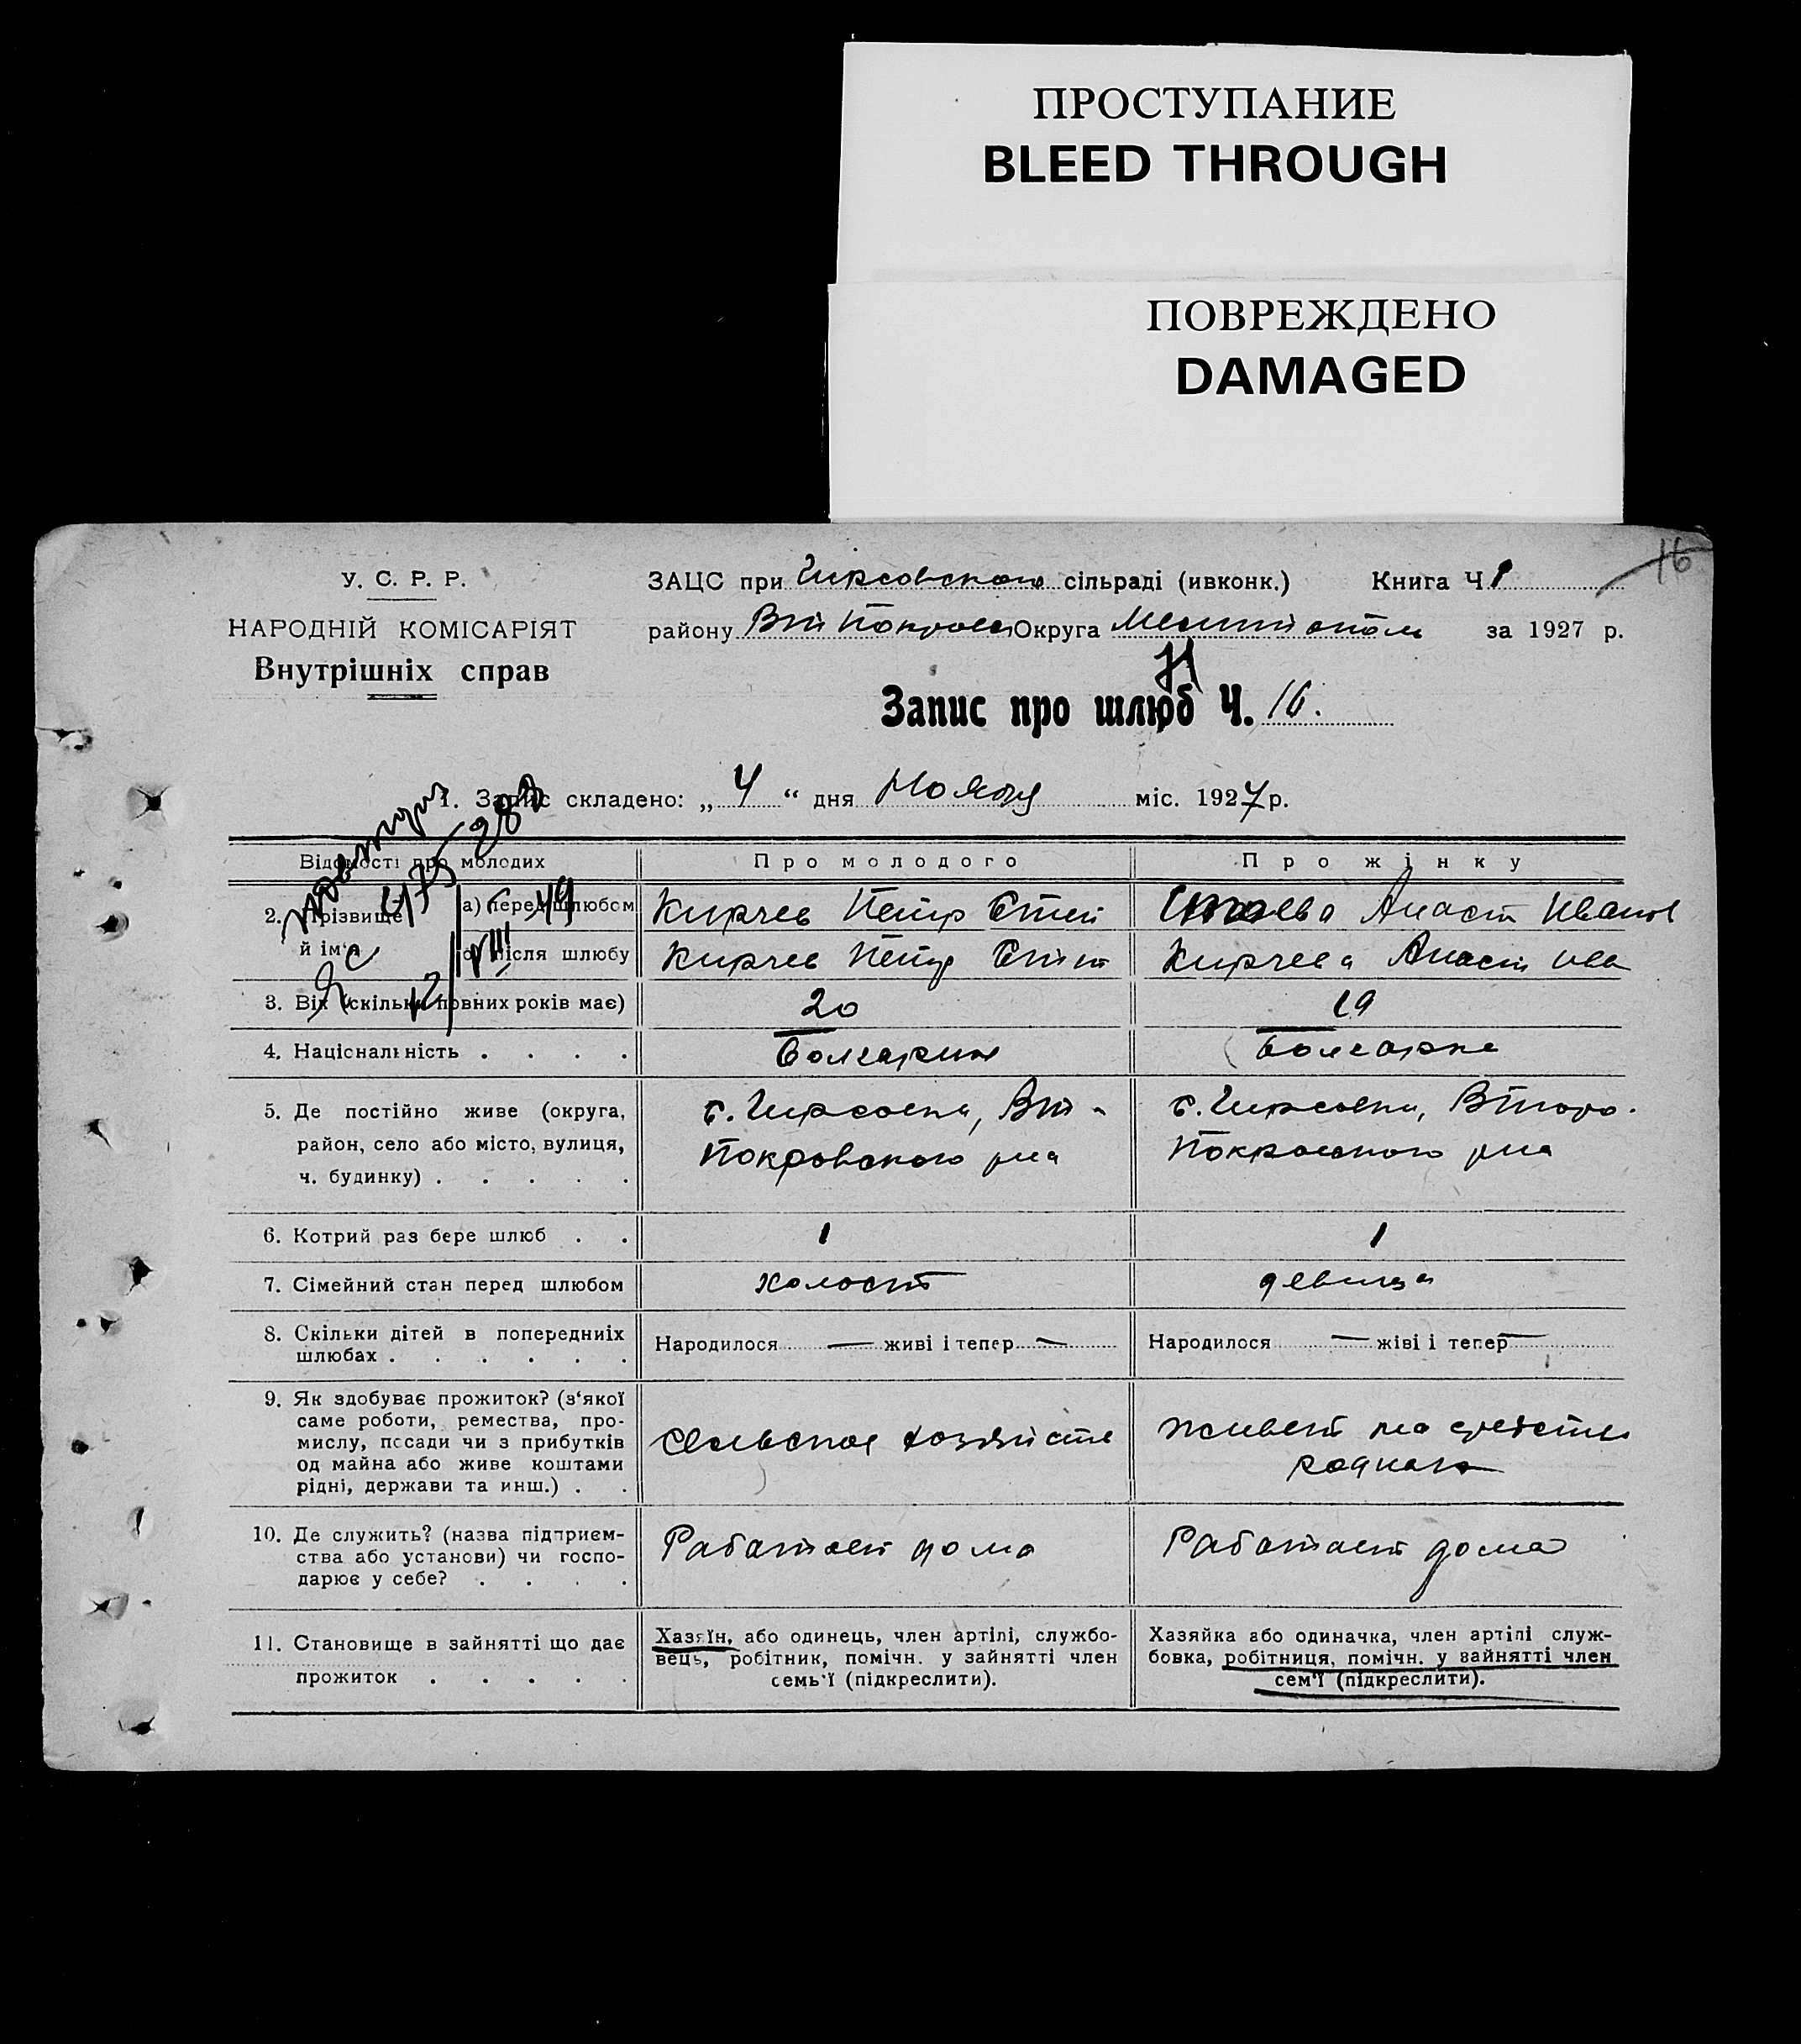 ПРОСТУПАНИЕ
BLEED THROUGH
ПОВРЕЖДЕНО
DAMAGED
16
У. С. Р. Р.
НАРОДНІЙ КОМІСАРІЯТ
Внутрішніх справ
ЗАЦС при Гирсовском сільраді (ивконк.) Книга Ч 1
району Вт Покровс Округа Мелитополь за 1927 р.
Запис про шлюб Ч. 16.
1. Запис складено: „ 4 “ дня Ноября міс. 1927 р.
Відомості про молодих
Про молодого
Про жінку
2. Прізвище й ім‘я
а) перед шлюбом
Кирчев Петр Степ
Стоева Анаст Иванов
після шлюбу
Кирчев Петр Степ
Кирчева Анаст Ива
3. Вік (скільки повних років має)
20
19
4. Національність . . . .
Болгарин
Болгарка
5. Де постійно живе (округа,
район, село або місто, вулиця,
ч. будинку) . . . . .
с. Гирсовка, Вт-
Покровского р-на
с. Гирсовка, Второ-
Покровского р-на
6. Котрий раз бере шлюб . .
1
1
7. Сімейний стан перед шлюбом
холост
девица
8. Скільки дітей в попередниіх
шлюбах . . . . . .
Народилося — живі і тепер —
Народилося — жіві і тепер —
9. Як здобуває прожиток? (з‘якої
саме роботи, ремества, про-
мислу, посади чи з прибутків
од майна або живе коштами
рідні, держави та инш.) . .
Сельское хозяйств
живет на средства
родных
10. Де служить? (назва підприєм-
ства або установи) чи госпо-
дарює у себе? . . . .
Работает дома
Работает дома
11. Становище в зайнятті що дає
прожиток . . . . .
Хазяїн, або одинець, член артілі, службо-
вець, робітник, помічн. у зайнятті член
семь‘ї (підкреслити).
Хазяйка або одиначка, член артілі служ-
бовка, робітниця, помічн. у зайнятті член
сем‘ї (підкреслити).